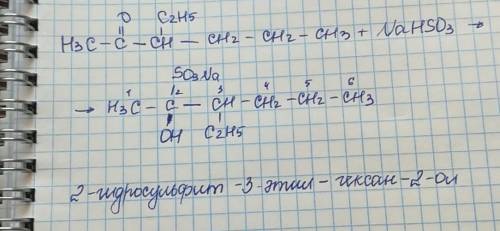 O C2H5
H3C-C-CH-CH2-CH2-CH3 + NaHSO3 →
SO3Na
→ H3C-C-CH-CH2-CH2-CH3
1 2 3 4 5 6
OH C2H5
2-гидросульфит-3-этил-гексан-2-ол